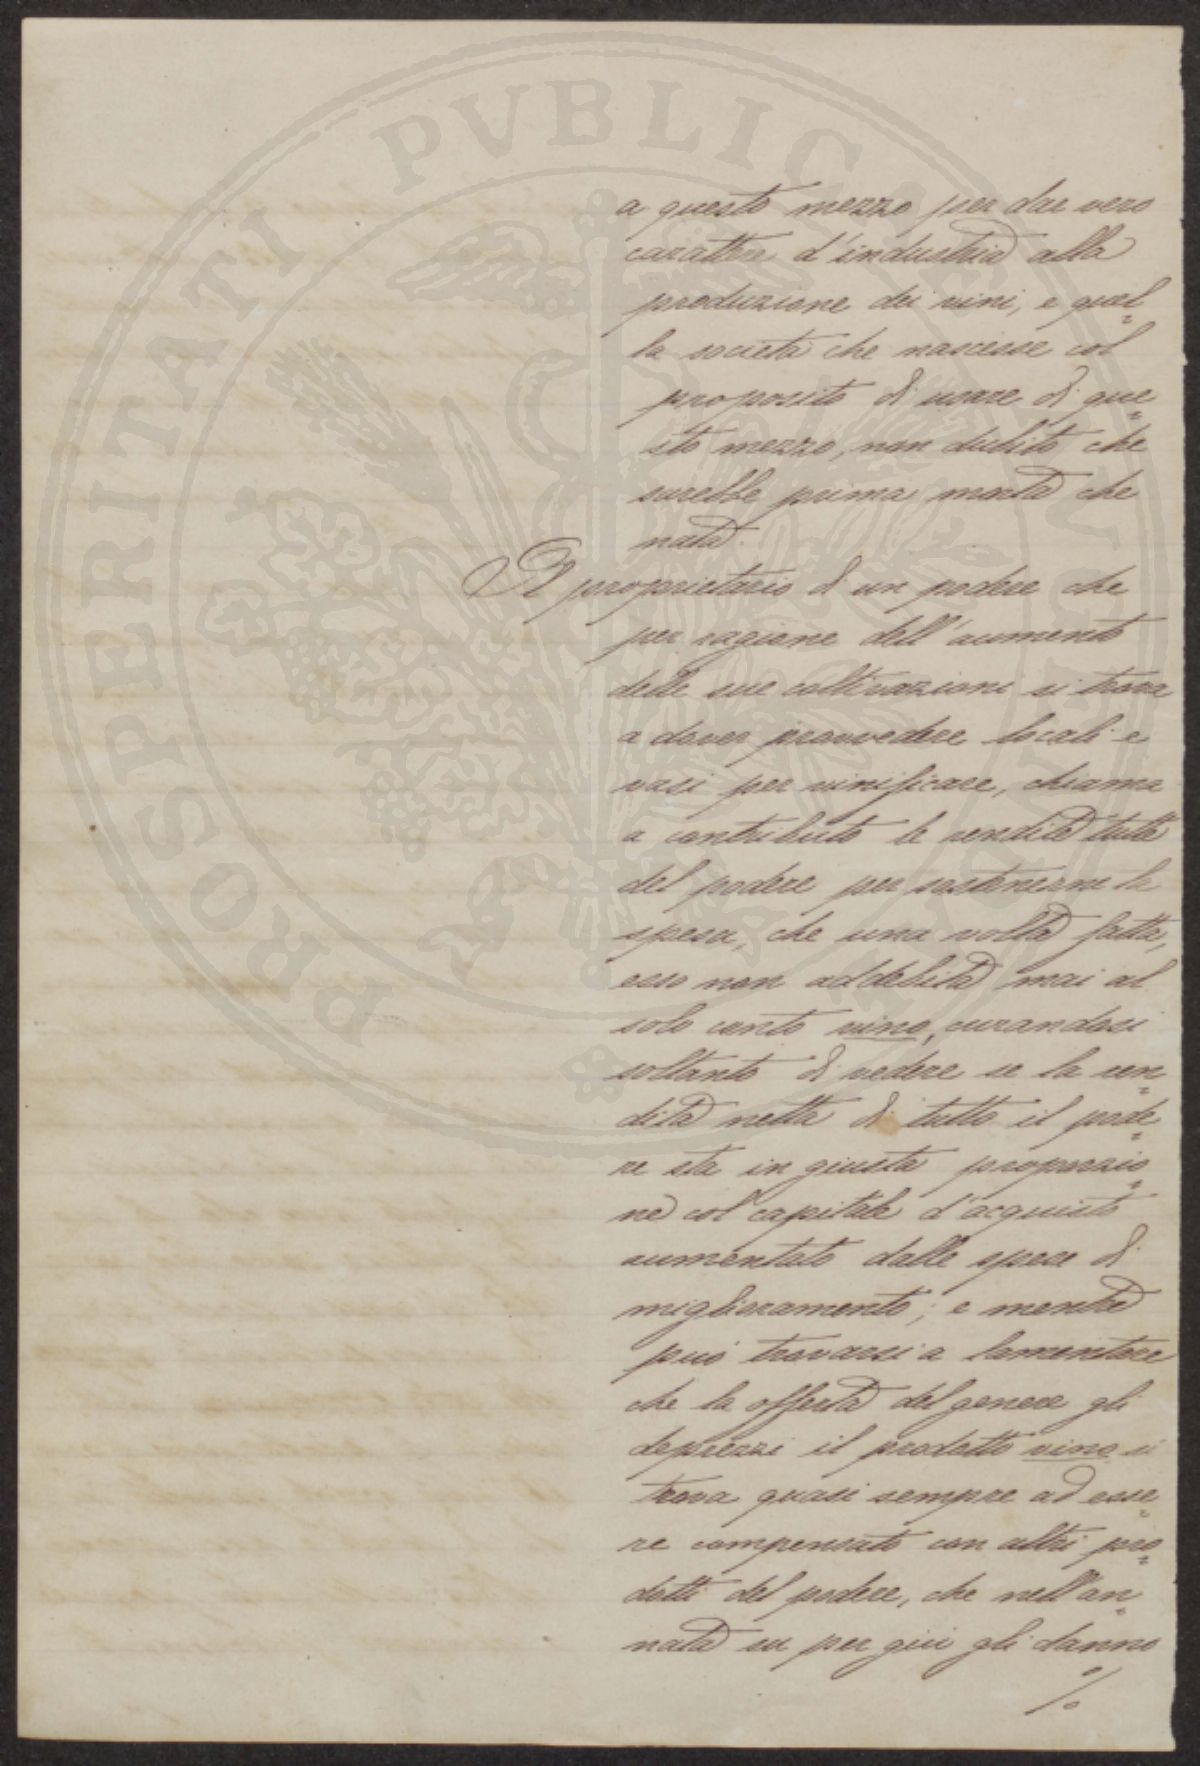 PROSPERITATI PVBLICAE
a questo mezzo per dar vero
carattere d'industria alla
produzione dei vini, e quel=
la società che nascesse col
proposito di usare di que=
sto mezzo, non dubito che
sarebbe prima morta che
nata.
Il proprietario di un podere che
per ragione dell'aumento
delle sue coltivazioni si trova
a dover provvedere locali e
vasi per vinificare, chiama
a contributo le rendite tutte
del podere per sostenerne la
spesa, che una volta fatta,
esso non addebita mai al
solo conto vino, curandosi
soltanto di vedere se la ren=
dita netta di tutto il pode=
re sta in giusta proporzio=
ne col capitale d'acquisto
aumentato dalle spese di
miglioramento; e mentre
può trovarsi a lamentare
che la offerta del genere gli
deprezzi il prodotto vino si
trova quasi sempre ad esse=
re compensato con altri pro=
dotti del podere, che nell'an=
nata su per giù gli danno
%